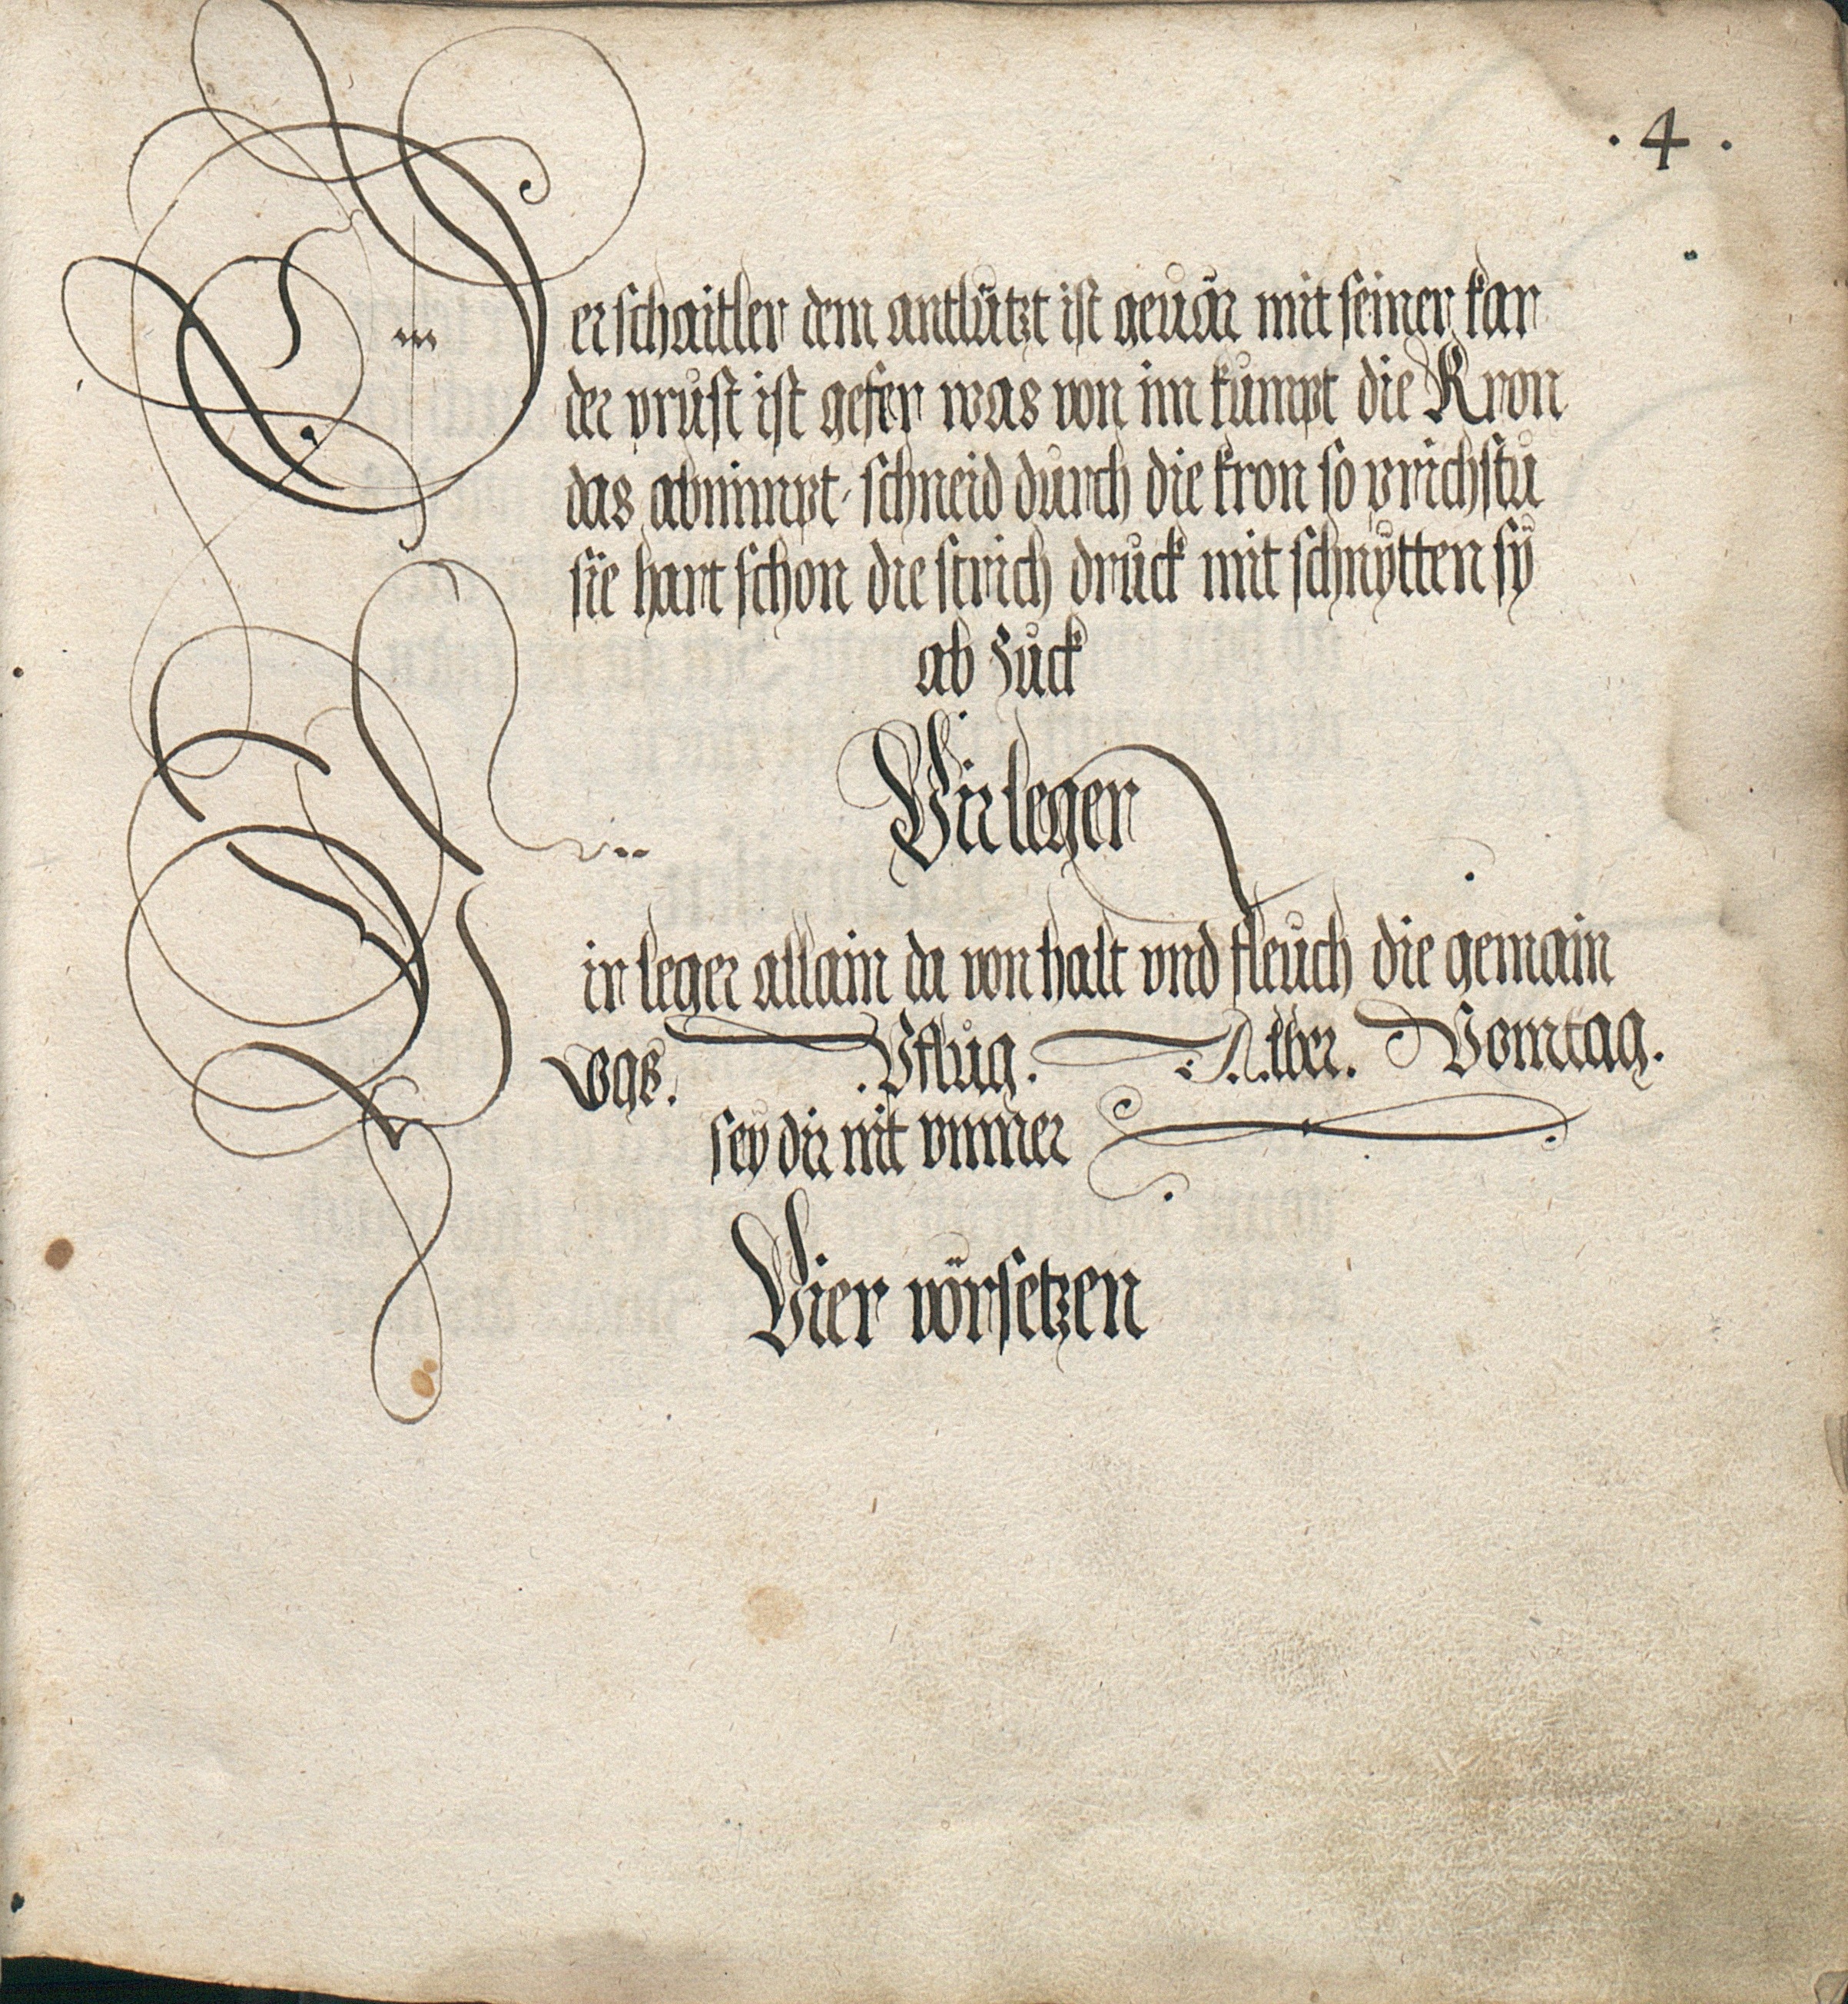 . 4 .
Der schaitler dem antlützt ist geuär mit seiner kar
der prust ist gefer was von im kumpt die Kron
das abnimpt schneid durch die kron so prichstu
sie hart schon die strich druck mit schnytten sÿ
ab zuck
Vir leger
Vir leger allain da von halt vnd fleuch die gemain
ochs. . Pflug. . Alber. Vomtag.
seÿ dir nit vnmer
Vier vörsetzen